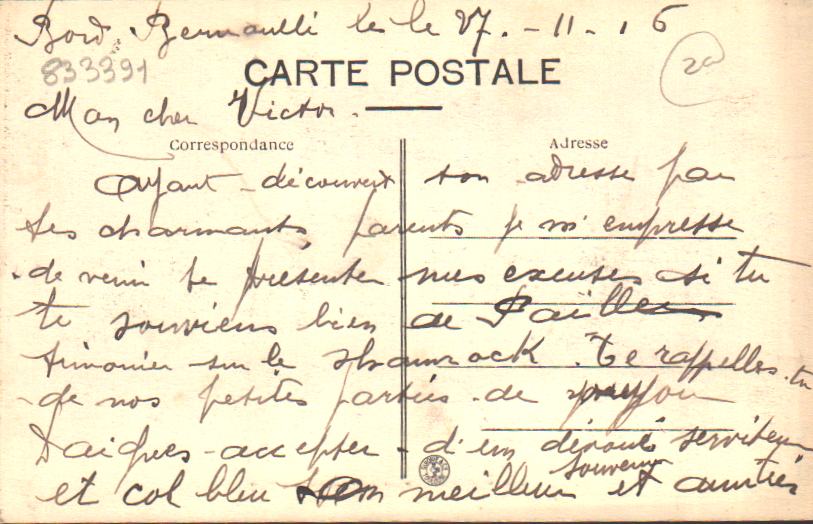 Bord Bernoulli les le 27 - 11 - 16
833391
20
CARTE POSTALE
Mon cher Victor.
Correspondance
Adresse
Ayant découvert ton adresse par
tes charmants parents je m'empresse
de venir te présenter mes excuses si tu
te souviens bien de Paillen
timonier sur le shamrock. Te rappelles-tu
de nos petites parties de
Daignes accepter d'un dévoué serviteur
et col bleu meilleur souvenir et amitiés